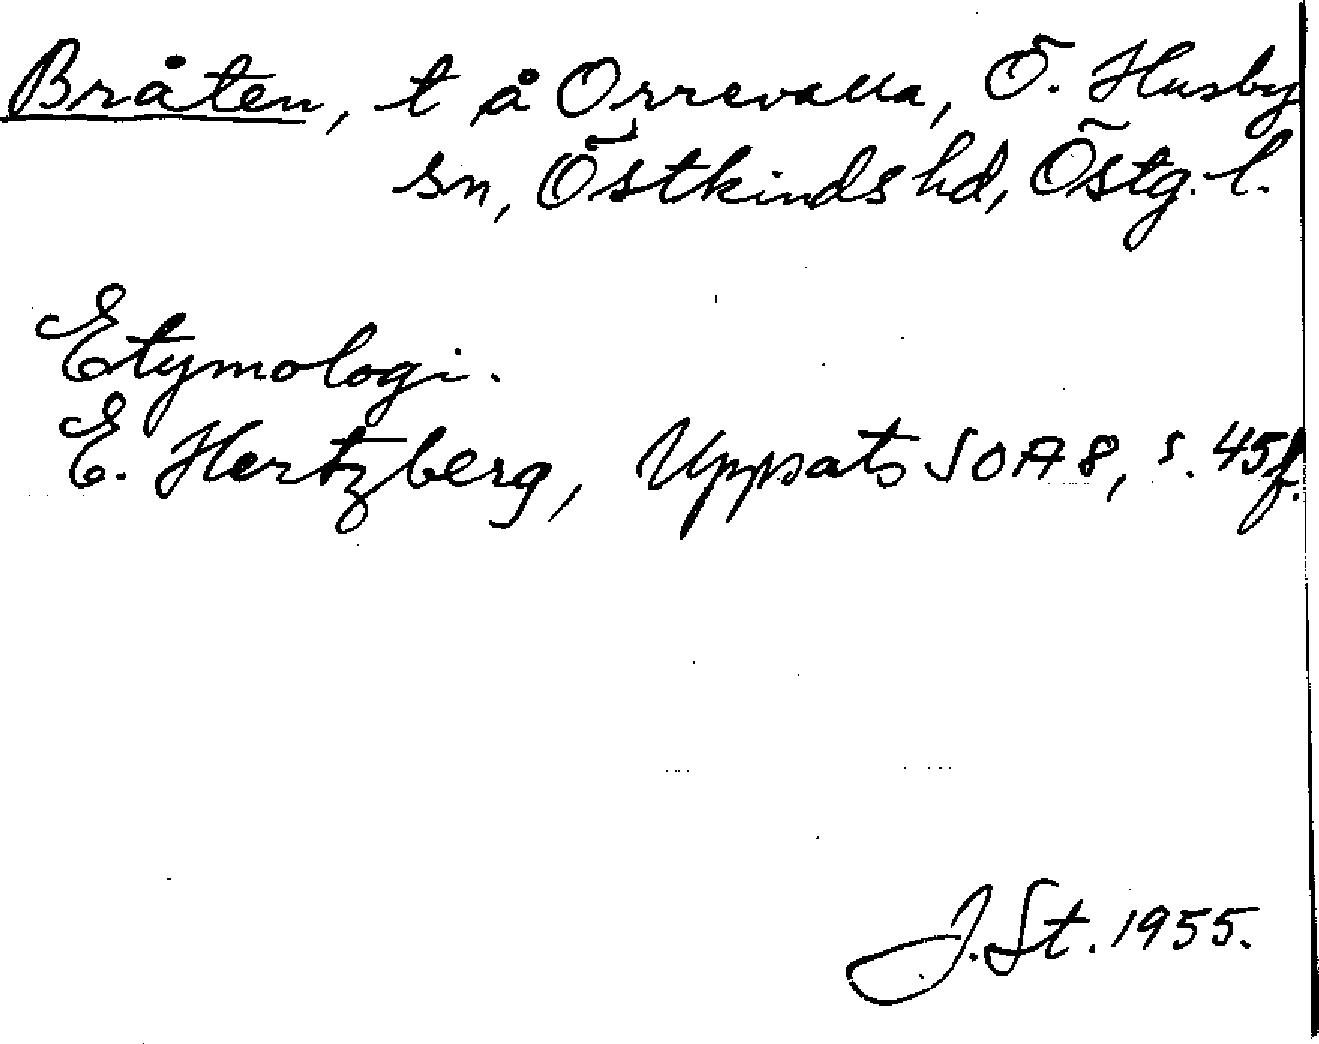 Bråten, t å Orrevalla, Ö. Husby
sn, Östkinds hd, Östg. l.
Etymologi.
E. Hertzberg, Uppsats SOA 8, s. 45f.
J. St. 1955.